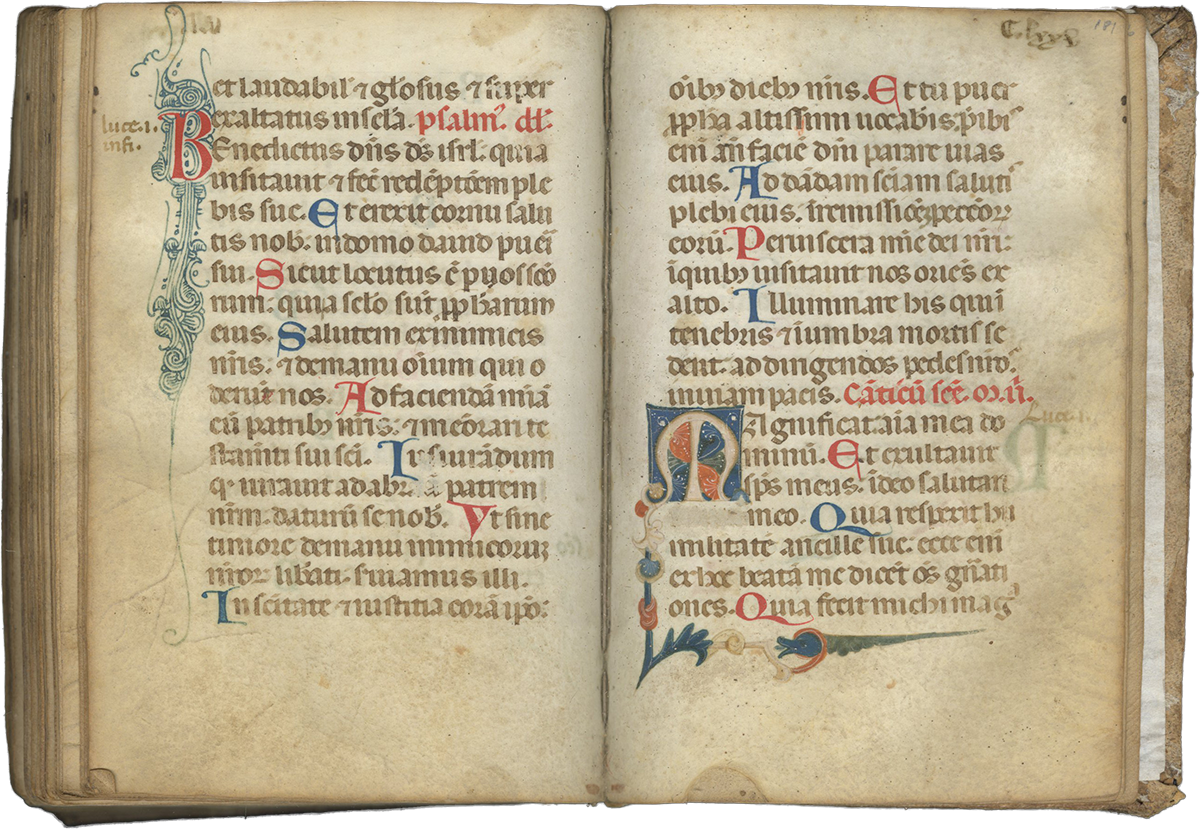 luce. i.
infi.
et laudabil' ⁊ gl'osus ⁊ super
exaltatus in sc̄la. psalm'. dd̄.
BEnedictus dn̄s ds̄ isrl. quia
uisitauit ⁊ fēc redēptōem ple
bis sue. Et erexit cornu salu
tis nob̄. in domo dauid puēi
sui. Sicut locutus ē p̱ os sc̄o
rum. quia sclō sūt pp̄harum
eius. Salutem ex inimicis
nr̄is. ⁊ de manu oīum qui o
derūt nos. Ad faciendā mīā
cū patrib; nr̄is. ⁊ memorari te
stam̄ti sui sc̄i. Iusiurādum
q iurauit ad abraā patrem
nr̄m. daturū se nob̄. Vt sine
timore de manu inimicoruꝫ
nr̄oꝝ lib̄ati. s̄uiamus illi.
In sc̄itate ⁊ iustitia corā ip̄o.
C. lxxx
181
oīb; dieb; nr̄is. Et tu puer
pp̄ha altissimi uocab̄is. p̄ibi
ēni an̄ faciē dn̄i parare uias
eius. Ad dādam sc̄iam saluti
plebi eius. ī remissiōeꝫ pecc̄oꝝ
eorū. Per uiscera mīe dei nr̄i.
ī quib; uisitauit nos oriēs ex
alto. Illuminare his qui ī
tenebris ⁊ ī umbra mortis se
dent. ad dirigendos pedes nr̄o
in uiam pacis. Cāticū sc̄e. m̄.ū.
MAgnificat aīa mea do
Luce. i.
minū. Et exultauit
sp̄s meus. ī deo salutari
meo. Quia respexit hu
militatē ancille sue. ecce ēni
ex hoc beatā me dicēt oēs gn̄ati
ones. Quia fecit michi mag